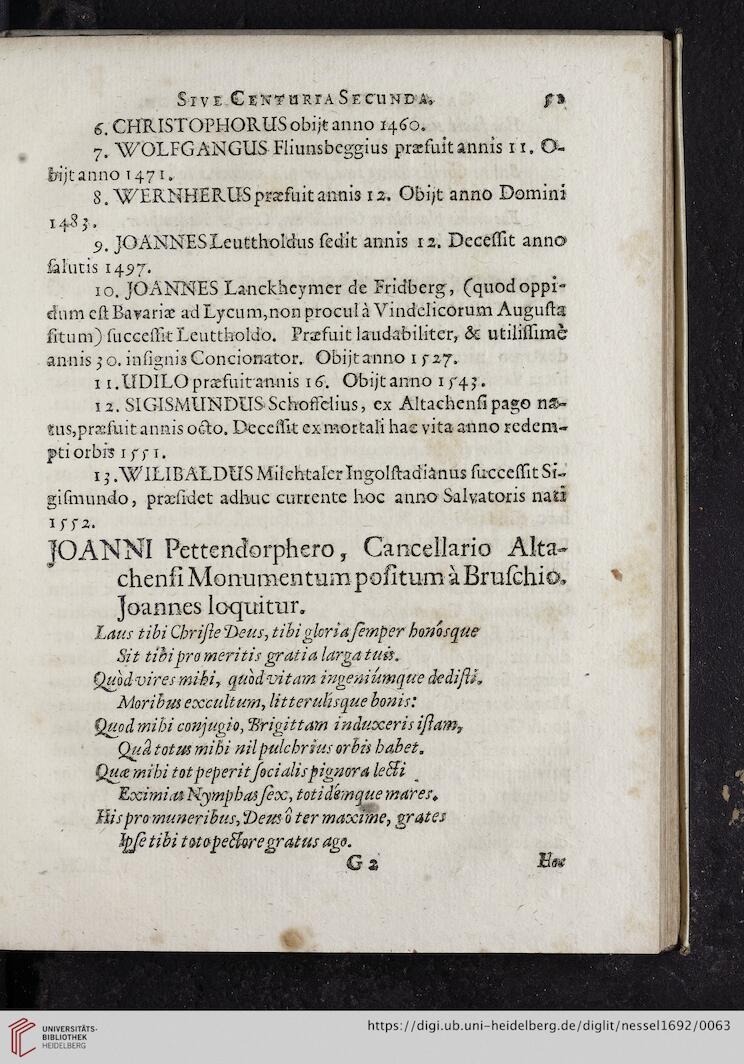 SIVE CENTURIA SECUNDA.
6. CHRISTOPHORUS obijt anno 1460.
7. WOLFGANGUS Fliunsbeggius præfuit annis 11. O-
bijt anno 1471.
8. WERNHERUS præfuit annis 12. Obijt anno Domini
1483.
9. JOANNES Leuttholdus ſedit annis 12. Deceſſit anno
ſalutis 1497.
10. JOANNES Lanckheymer de Fridberg, (quod oppi-
dum eſt Bavariæ ad Lycum, non procul à Vindelicorum Auguſta
ſitum) ſucceſſit Leuttholdo. Præfuit laudabiliter, & utiliſſimè
annis 30. inſignis Concionator. Obijt anno 1527.
11. UDILO præfuit annis 16. Obijt anno 1543.
12. SIGISMUNDUS Schoffelius, ex Altachenſi pago na-
tus, præfuit annis octo. Deceſſit ex mortali hac vita anno redem-
pti orbis 1551.
13. WILIBALDUS Milchtaler Ingolſtadianus ſucceſſit Si-
giſmundo, præſidet adhuc currente hoc anno Salvatoris nati
1552.
JOANNI Pettendorphero, Cancellario Alta-
chenſi Monumentum poſitum à Bruſchio.
Joannes loquitur.
Laus tibi Chriſte Deus, tibi gloria ſemper honósque
Sit tibi pro meritis gratia larga tuis.
Quòd vires mihi, quòd vitam ingeniúmque dediſti,
Moribus excultum, litterulisque bonis:
Quod mihi conjugio, Brigittam induxeris iſtam,
Quâ totus mihi nil pulchrius orbis habet.
Quæ mihi tot peperit ſocialis pignora lecti
Eximias Nymphas ſex, totidémque mares.
His pro muneribus, Deus ô ter maxime, grates
Ipſe tibi toto pectore gratus ago.
G 2 Hoc
UNIVERSITÄTS-
BIBLIOTHEK
HEIDELBERG
https://digi.ub.uni-heidelberg.de/diglit/nessel1692/0063